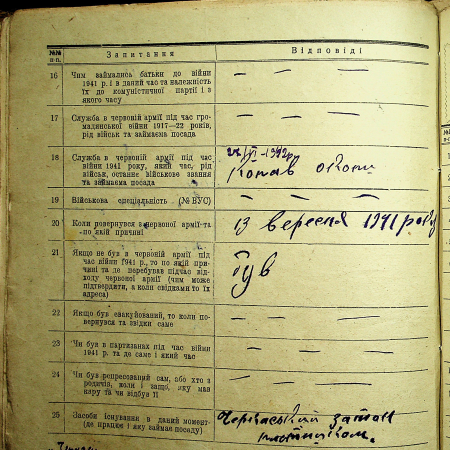 №№ п-п. Запитання Відповіді
16 Чим займались батьки до війни — —
1941 р. і в даний час та належність
їх до комуністичної партії і з
якого часу
17 Служба в червоній армії під час гро- — — —
мадянської війни 1917—22 років,
рід військ та займаєма посада
18 Служба в червоній армії під час
війни 1941 року, який час, рід Копав окопи
війська, останнє військове звання
та займаєма посада
19 Військова спеціяльність (№ ВУС) — — —
20 Коли ровернувся з червоної армії та 13 вересня 1941 року
по якій причині
21 Якщо не був в червоній армії під
час війни 1941 р., то по якій при- був
чині та де перебував підчас від-
ходу червоної армії (чим може
підтвердити, а коли свідками то їх
адреса)
22 Якщо був евакуйований, то коли по- — — —
вернувся та звідки саме
23 Чи був в партизанах під час війни — — —
1941 р. та де саме і який час
24 Чи був репресований сам, або хто з — — —
родичів, коли і защо, яку мав
кару та чи відбув її
25 Засоби існування в даний момент Черкаський затон
(де працює і яку займає посаду) плотником.